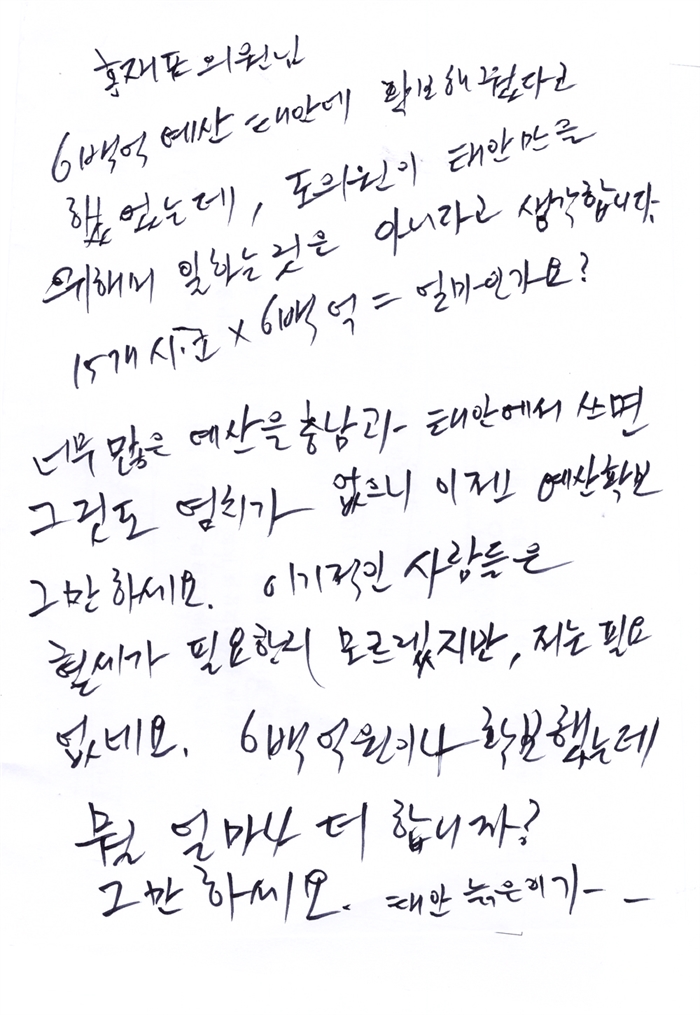 홍재표 의원님
6백억 예산 태안에 확보해 줬다고
했었는데, 도의원이 태안만을
위해서 일하는것은 아니라고 생각합니다.
15개 시·군 x 6백억 = 얼마인가요?
너무 많은 예산을 충남과 태안에서 쓰면
그것도 염치가 없으니 이젠 예산확보
그만하세요. 이기적인 사람들은
혈세가 필요한지 모르겠지만, 저는 필요
없네요. 6백억원이나 확보했는데
뭘 얼마나 더 합니까?
그만하세요. 태안 늙은이가 -